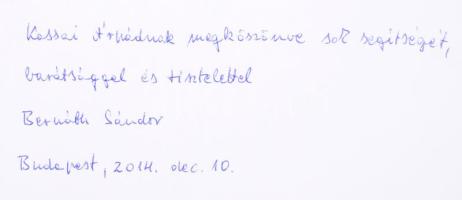 Kassai Árpádnak megköszönve sok segítségét,
barátsággal és tisztelettel
Bernáth Sándor
Budapest, 2014. dec. 10.